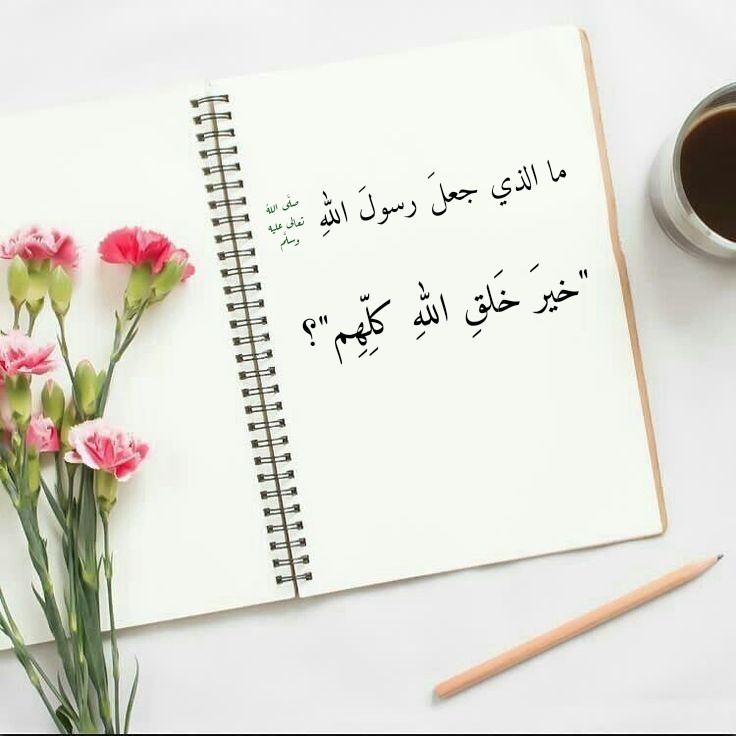 ما الذي جعلَ رسولَ اللهِ صلَّى اللهُ تعالى عليه وسلَّم
"خيرَ خَلقِ اللهِ كلِّهِم"؟